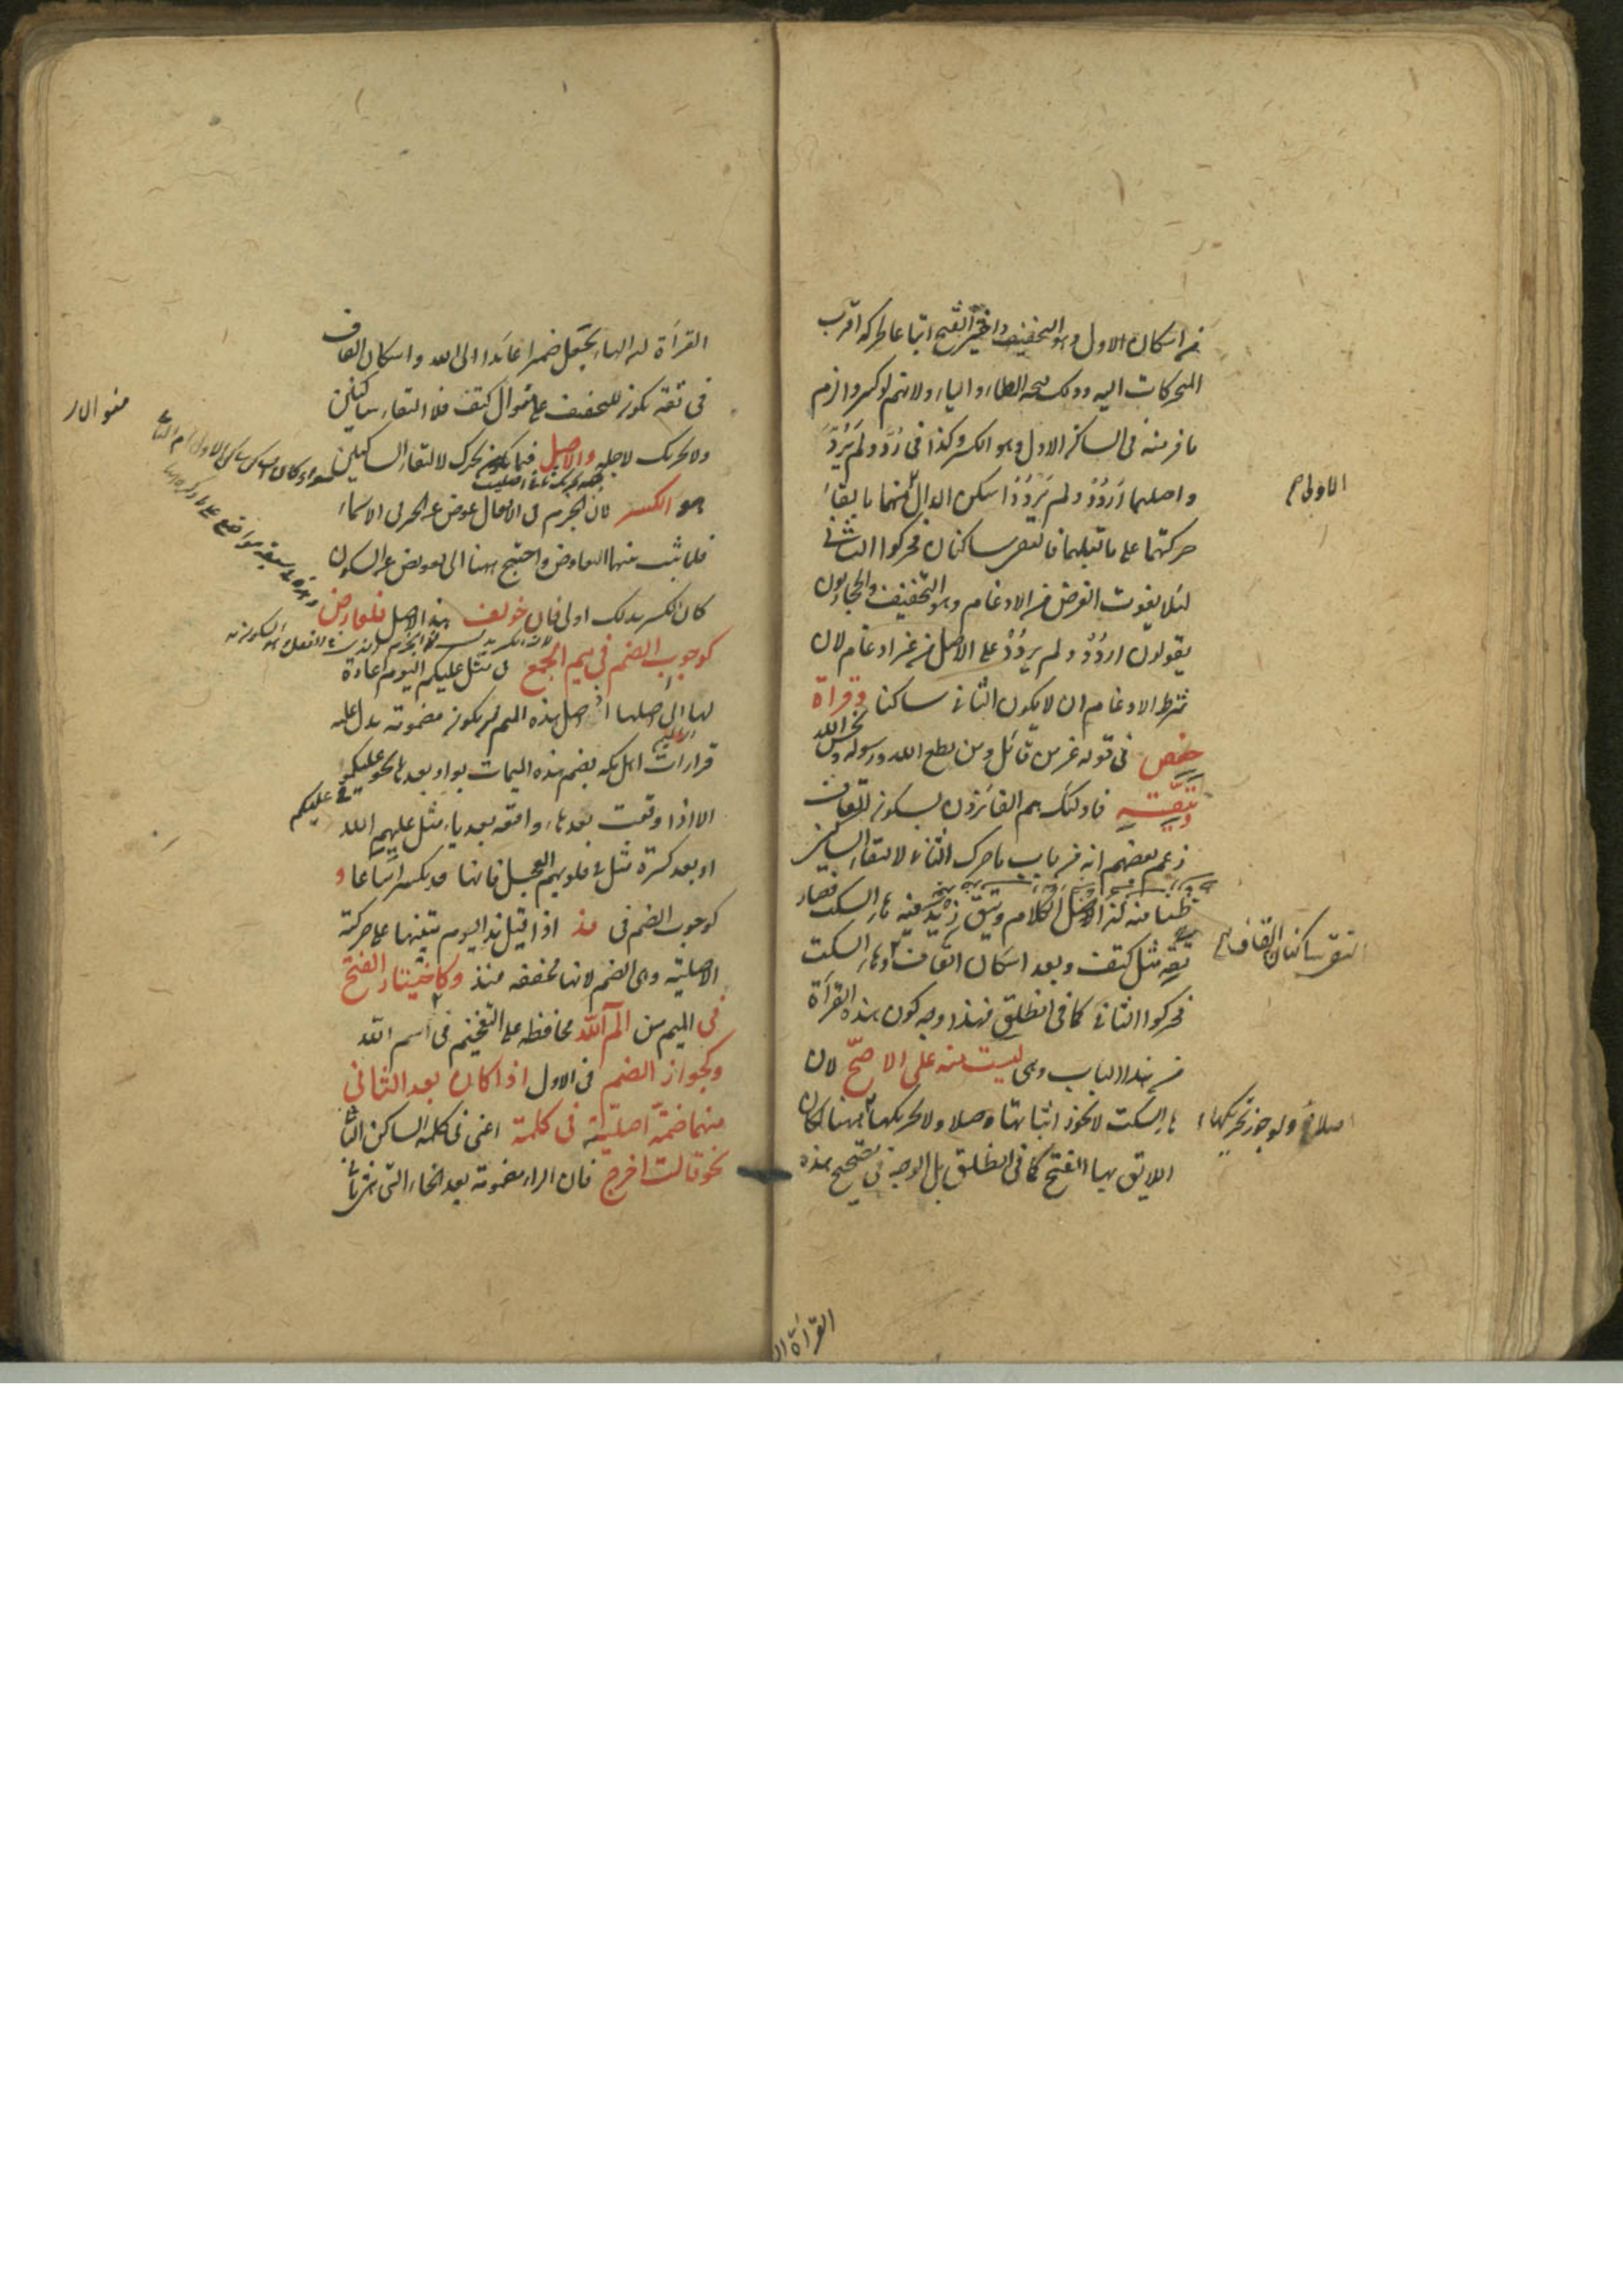 من اسكان الاول وهو التخفيف واختير الفتح اتباعا لحركة اقرب
المتحركات اليه وذلك فتحة الطاء والياء ولانهم لو كسروا لزم
ما فر منه فى الساكن الاول وهو الكسر وكذا فى رُدَّ ولم يَرُدَّ
واصلهما اُرْدُدْ ولم يَرْدُدْ اسكن الدال منهما بالقاء
الاولى صح
حركتها على ما قبلها فالتقى ساكنان فحركوا الثانى
لئلا يفوت الغرض من الادغام وهو التخفيف والحجازيون
يقولون اردُدْ ولم يردُدْ على الاصل من غير ادغام لان
شرط الادغام ان لا يكون الثانى ساكنا وقراة
حفص فى قوله عز من قائل ومن يطع الله ورسوله ويخش الله
ويتقه فاولئك هم الفائزون بسكون القاف
زعم بعضهم انه من باب ما حرك الثانى لالتقاء الساكنين
ظنا منه ان اصل الكلام ويتق زيدت فيه هاء السكت فصار
تقه مثل كتف وبعد اسكان القاف وهاء السكت
التقى ساكنان القاف
فحركوا الثانى كما فى انطلق فهذا وجه كون هذه القراة
من هذا الباب وهى ليست منه على الاصح لان
هاء السكت لا يجوز اثباتها وصلا ولا تحريكها ههنا لكان
اصلا ولو جوز تحريكها
اللايق بها الفتح كما فى انطلق بل الوجه فى تصحيح هذه
القراة ان
القراة ان الهاء يجعل ضميرا عائدا الى الله واسكان القاف
فى تقه يكون للتخفيف على منوال كتف فلا التقاء ساكنين
ولا تحريك لاجله والاصل فيما يكون تحرك لالتقاء الساكنين
سواء كان الساكن الاول ام الثانى
هو الكسر لان الجزم فى الافعال عوض عن الجر فى الاسماء
فلما ثبت بينهما التعاوض واحتيج ههنا الى تعويض عن السكون
كان الكسر بذلك اولى فان خولف هذا الاصل فلعارض
كوجوب الضم فى ميم الجمع فى مثل عليكم اليوم اعادة
لها الى اصلها اذ اصل هذه الميم ان يكون مضمومة يدل عليه
قراءات اهل مكة بضم هذه الميمات بواو بعدها نحو عليكمو
فى عليكم
الا اذا وقعت بعد هاء واقعة بعد ياء مثل عليهم الله
او بعد كسرة مثل فى قلوبهم العجل فانها قد يكسر اتباعا و
كوجوب الضم فى مذ اذا قيل مذ اليوم تنبيها على حركته
الاصلية وهى الضم لانها مخففة منذ وكاختيار الفتح
فى الميم من الم الله محافظة على التفخيم فى اسم الله
وكجواز الضم فى الاول اذا كان بعد الثانى
منهما ضمة اصلية فى كلمة اعنى فى كلمة الساكن الثانى
نحو قالت اخرج فان الراء مضمومة بعد الخاء التى هى ثانى